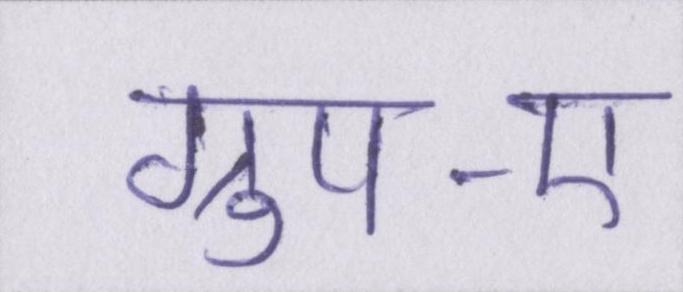 ग्रुप-ए